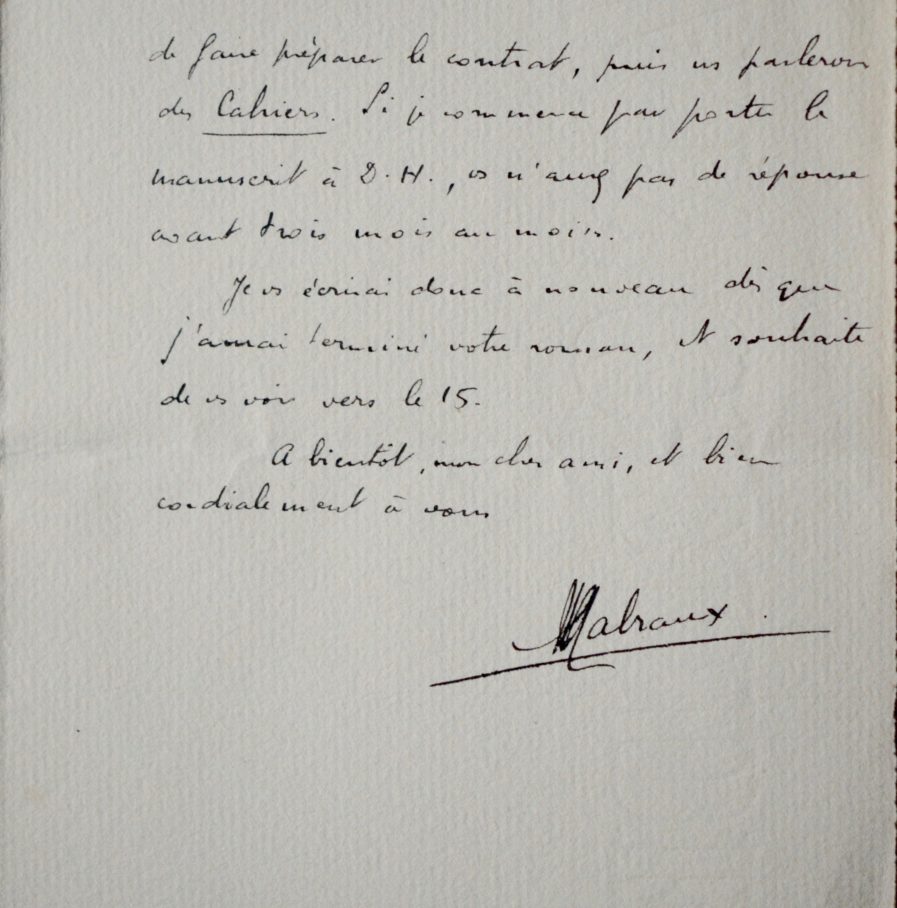 de faire préparer le contrat, puis ns parlerons
des Cahiers. Si je commence par porter le
manuscrit à D.H., vs n'aurez pas de réponse
avant trois mois au moins.
Je vs écrirai donc à nouveau dès que
j'aurai terminé votre roman, et souhaite
de vs voir vers le 15.
A bientôt, mon cher ami, et bien
cordialement à vous
Malraux